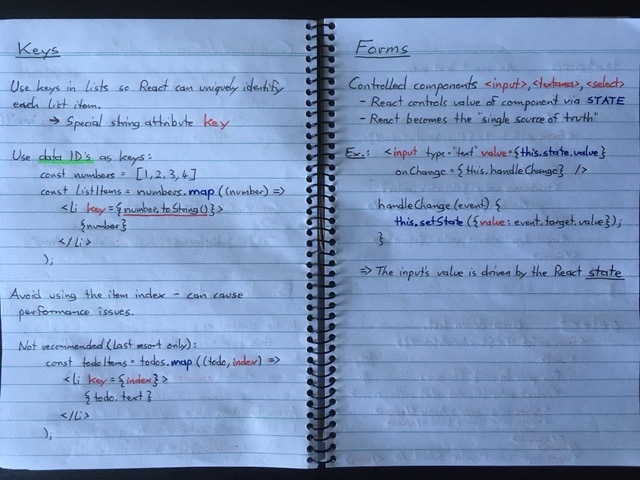 Keys
Use keys in lists so React can uniquely identify
each list item.
→ Special string attribute key
Use data ID's as keys:
const numbers = [1, 2, 3, 4]
const listItems = numbers.map((number) =>
<li key={number.toString()}>
{number}
</li>
);
Avoid using the item index - can cause
performance issues.
Not recommended (last resort only):
const todoItems = todos.map((todo, index) =>
<li key={index}>
{todo.text}
</li>
);
Forms
Controlled components <input>, <textarea>, <select>
- React controls value of component via STATE
- React becomes the "single source of truth"
Ex.: <input type="text" value={this.state.value}
onChange={this.handleChange} />
handleChange(event) {
this.setState({value: event.target.value});
}
⇒ The input's value is driven by the React state